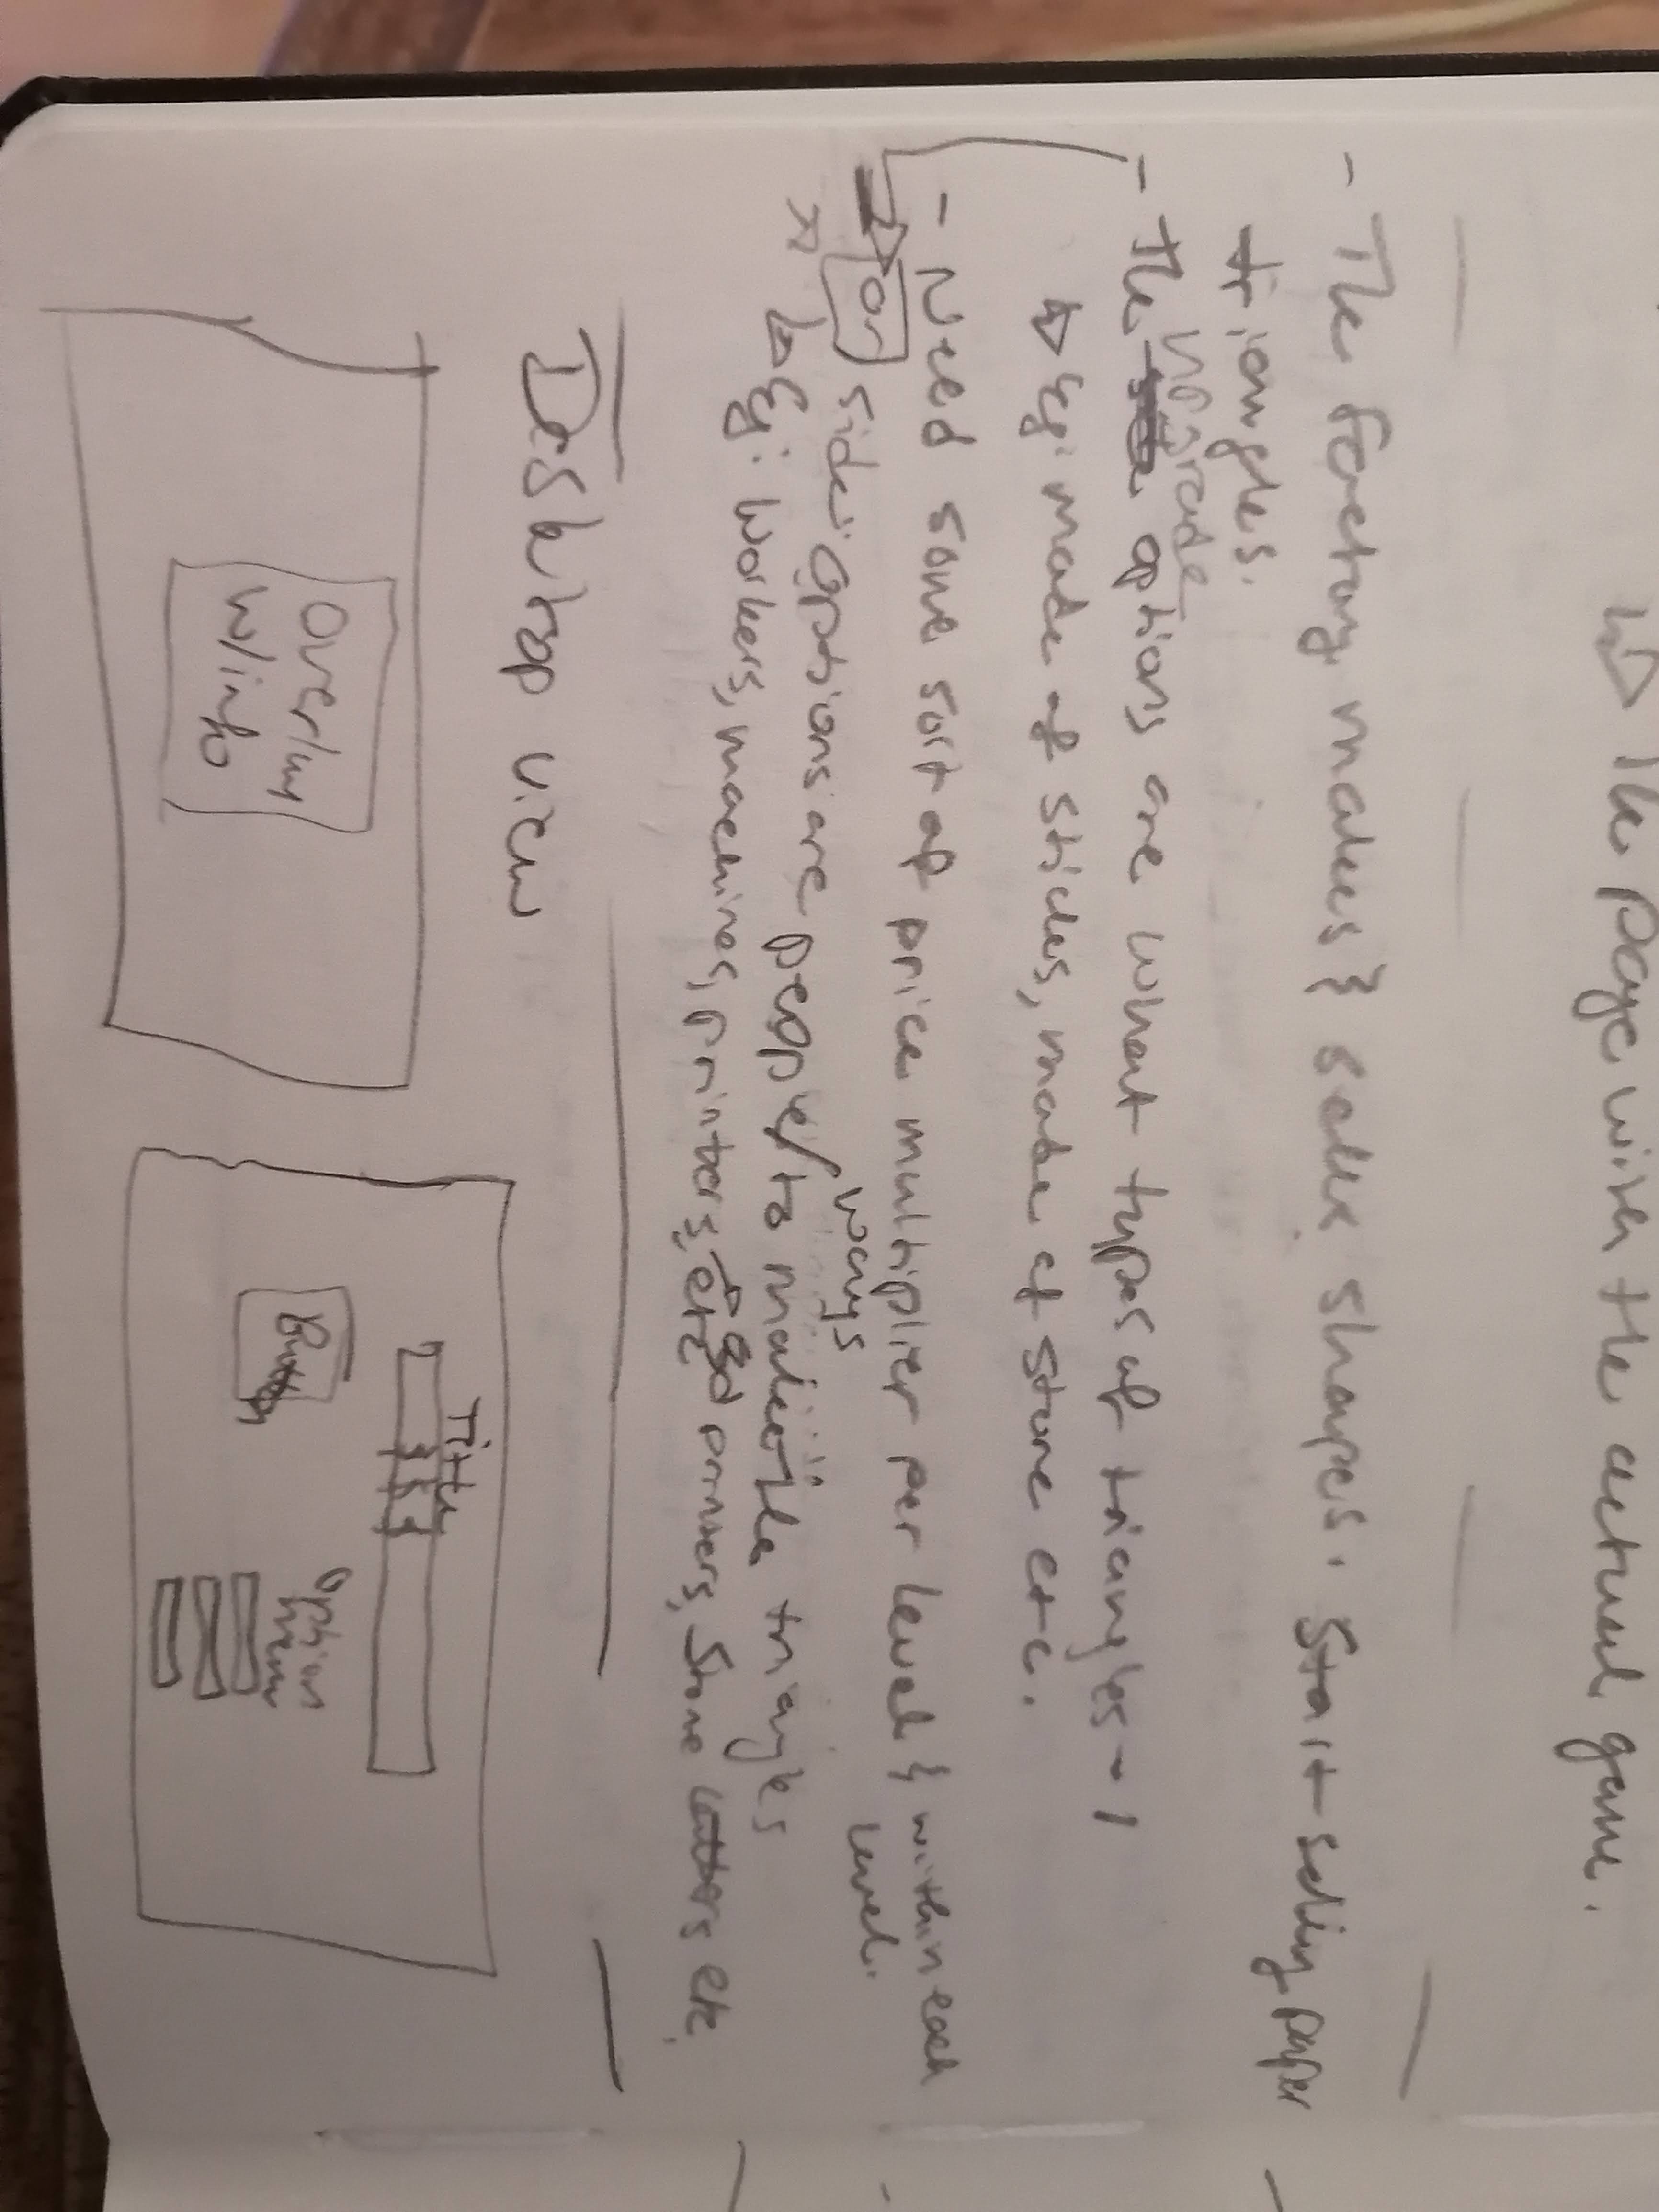 ↳ The page with the actual game.
- The factory makes & sells shapes. Start selling paper
triangles.
upgrade
- The options are what types of triangles -
↳ Eg: made of sticks, made of stone etc.
- Need some sort of price multiplier per level & within each
level.
or side options are people/ways to make the triangles
↳ Eg: Workers, machines, printers, 3d printers, Stone cutters etc.
Desktop view
Overlay
w/info
Title
$$$
Button
Option
menu